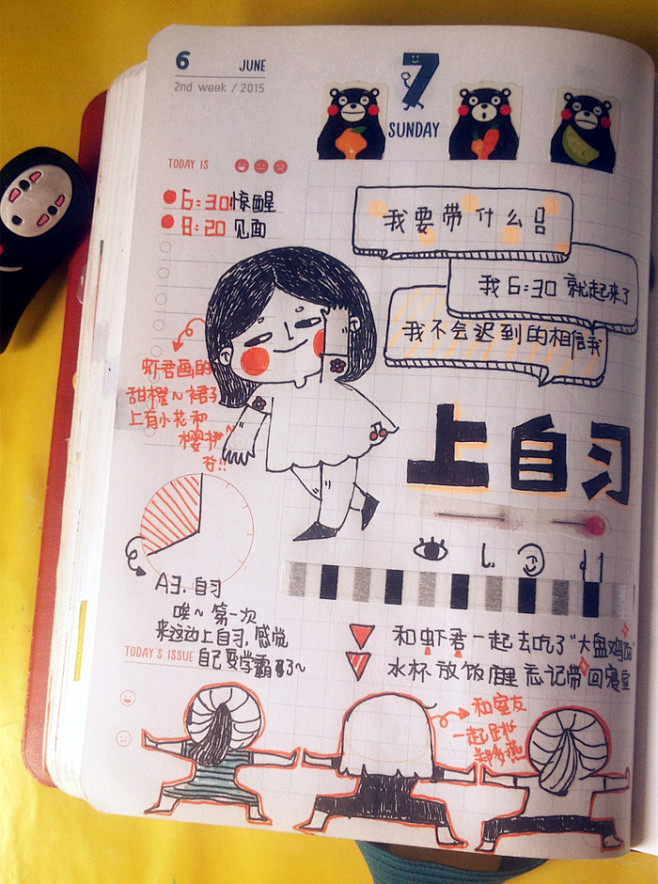 6
JUNE
2nd week / 2015
7
SUNDAY
TODAY IS
6:30惊醒
8:20 见面
我要带什么
我 6:30 就起来了
我不会迟到的相信我
虾君画的
甜橙~裙子
上有小花和
樱桃~
上自习
A3. 自习
唉~ 第一次
来这边上自习,感觉
自己要学霸了~
TODAY'S ISSUE
和虾君一起去吃了"大盘鸡面"
水杯放饭店里忘记带回寝室
和室友
一起跳
郑多燕